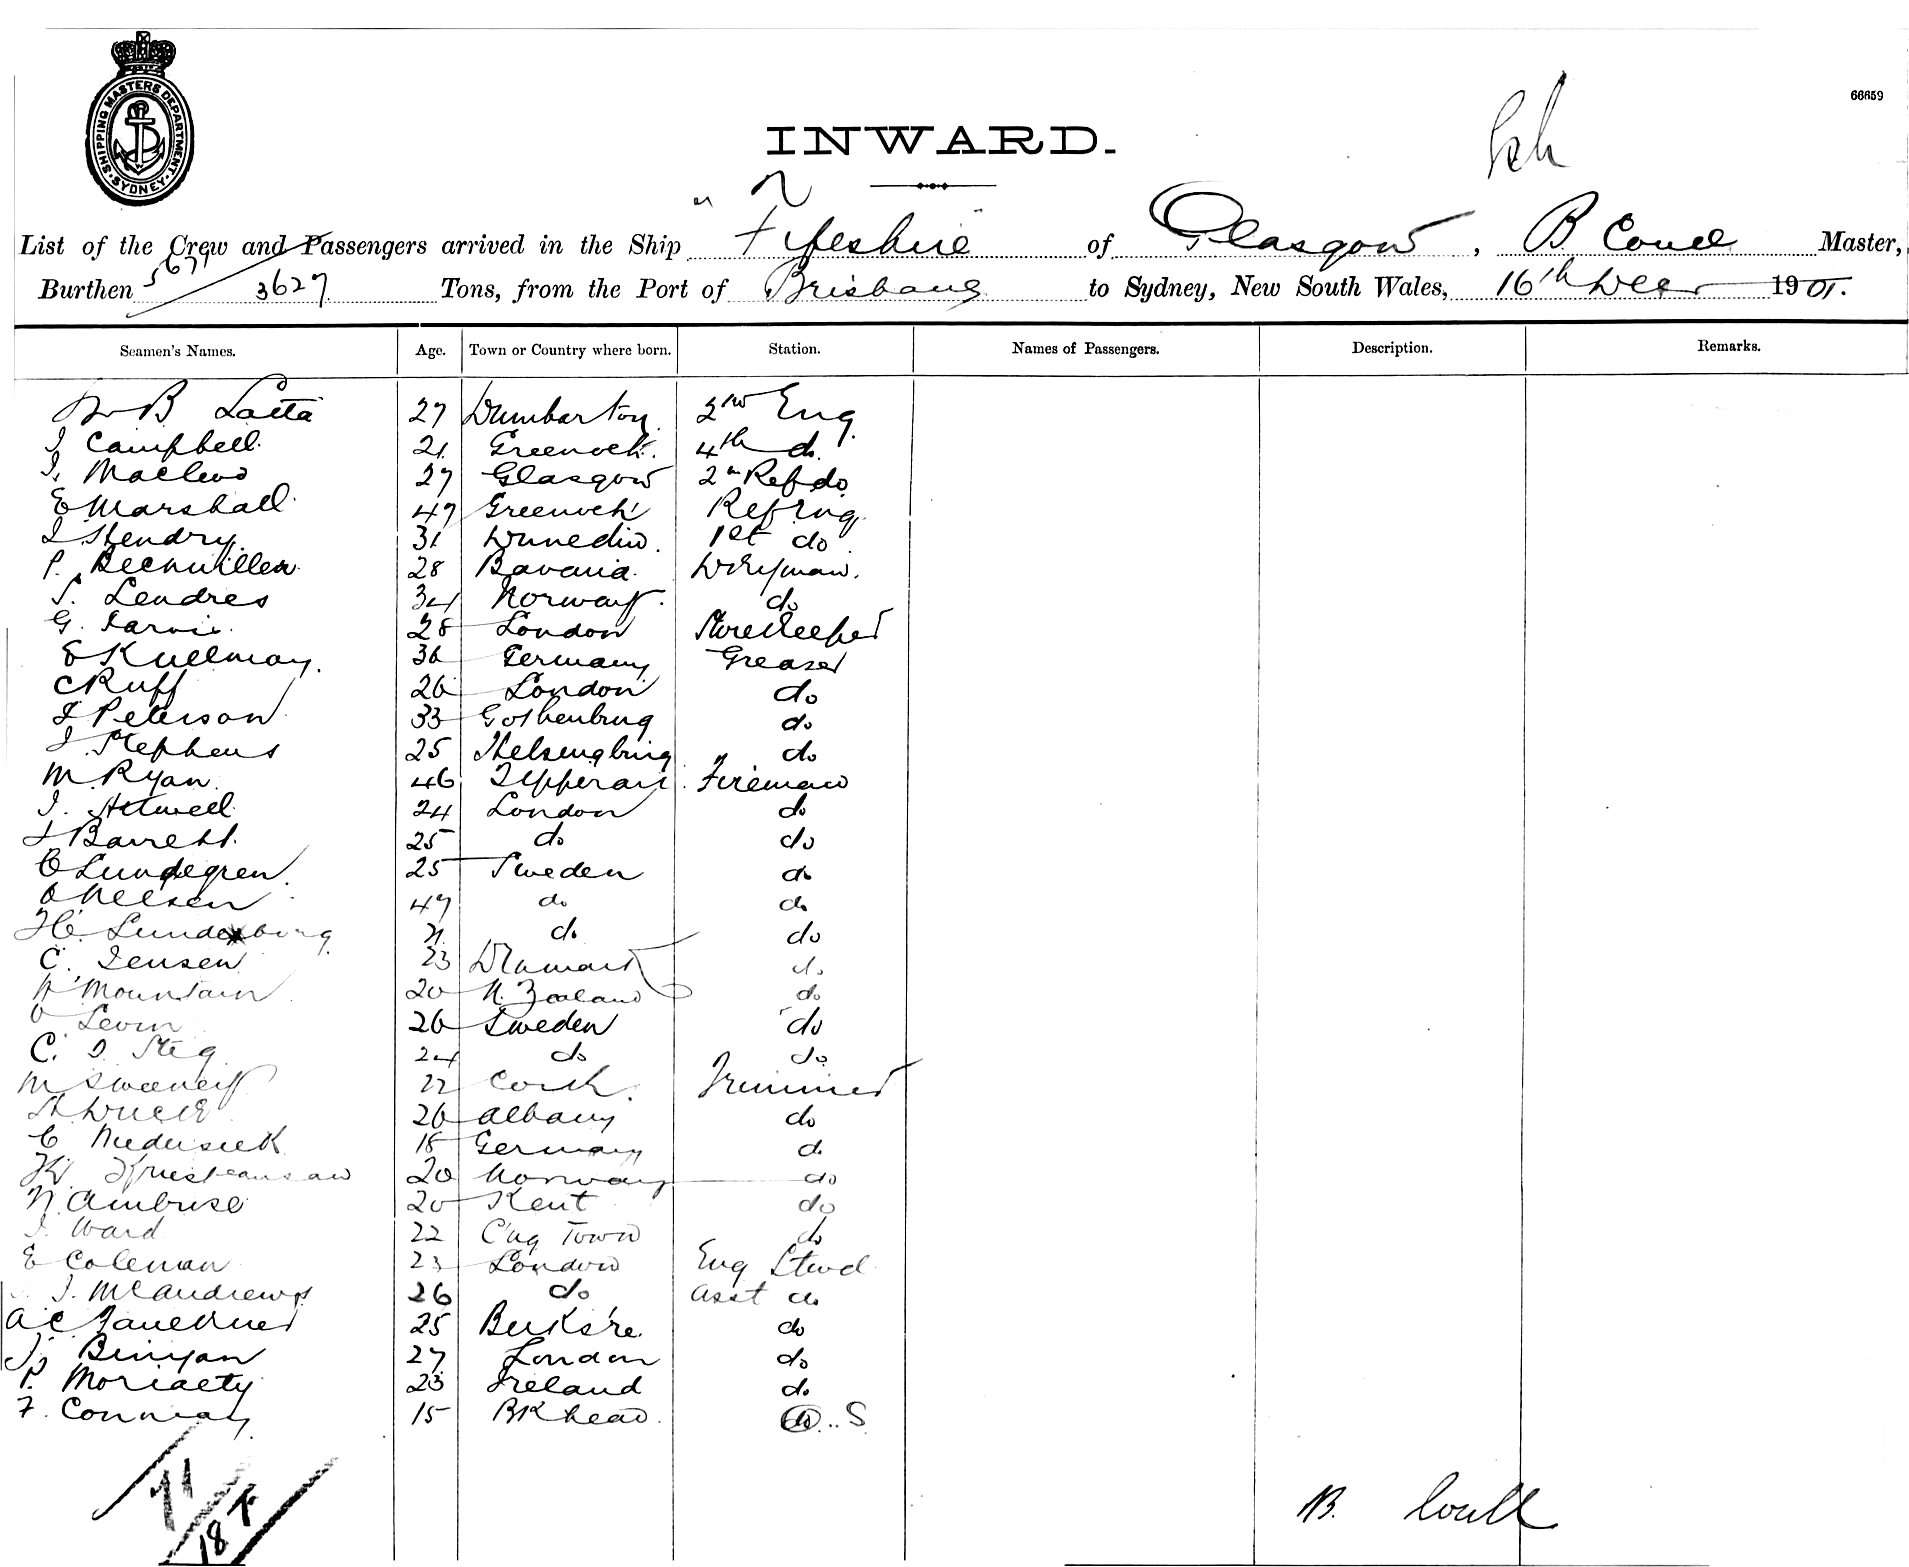 SHIPPING MASTERS DEPARTMENT SYDNEY
66659
INWARD.
List of the Crew and Passengers arrived in the Ship "Fifeshire" of Glasgow, B. Coull Master,
Burthen 5671/3627 Tons, from the Port of Brisbane to Sydney, New South Wales, 16th Decr 1901.
Seamen's Names. Age. Town or Country where born. Station. Names of Passengers. Description. Remarks.
B Latta 27 Dumbarton 2nd Eng
J Campbell 21 Greenock 4th do
J. Macleod 27 Glasgow 2nd Ref do
E Marshall 47 Greenock Ref Eng
J Hendry 31 Dunedin 1st do
P. 28 Bavaria Dkyman
34 Norway do
G. Jarvis 28 London Storekeeper
E Kullman 36 Germany Greaser
C Ruff 26 London do
J Peterson 33 Gothenburg do
J Stephens 25 Helsingburg do
M Ryan 46 Tipperary Fireman
J. Attwell 24 London do
J Barrett 25 do do
C Lundegren 25 Sweden do
O Nelsen 47 do do
21 do do
C. Jensen 23 Denmark do
H Mountain 20 N. Zealand do
O Levin 26 Sweden do
C. J. Steg 24 do do
M Sweeney 22 Cork Trimmer
26 Albany do
C Niedersiek 18 Germany do
20 Norway do
N. Ambrose 20 Kent do
J. Ward 22 C'ng Town do
E Coleman 23 London Eng Stwd
J. McAndrews 26 do Asst do
A C Faulkner 25 Berks're do
J. Binyon 27 London do
P. Moriarty 23 Ireland do
F. Conway 15 BKhead do .. S
B. Coull